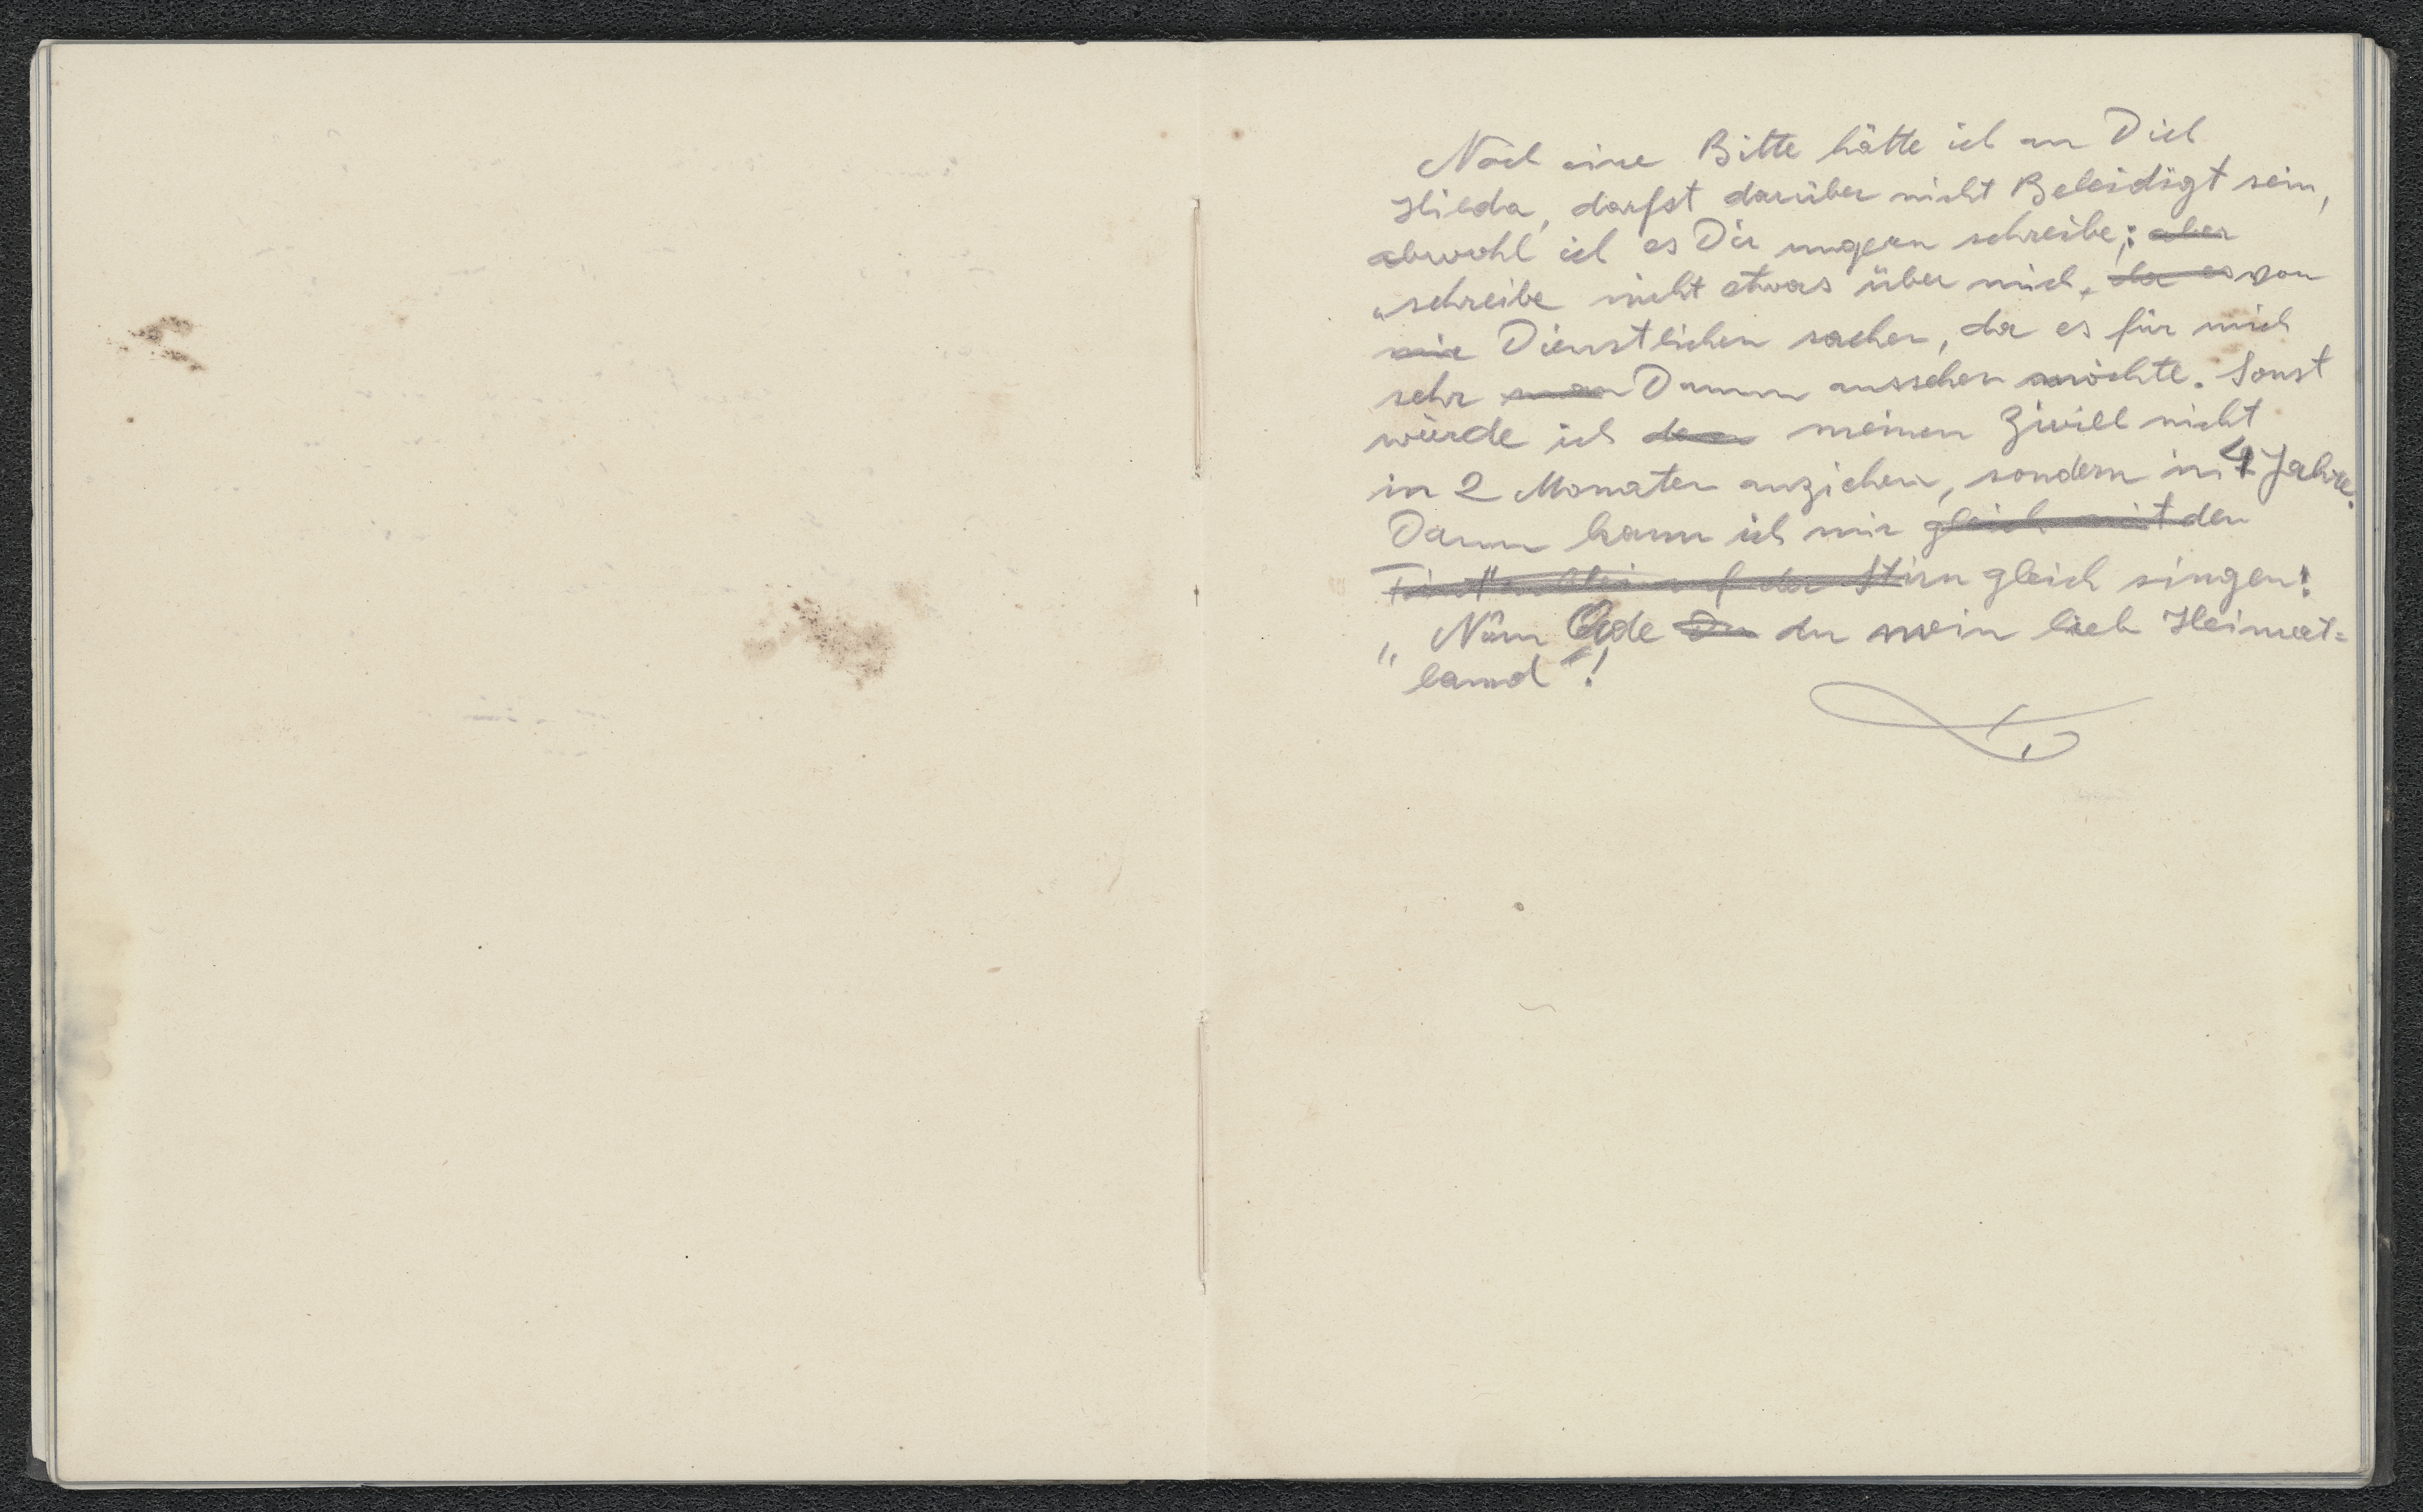 Noch eine Bitte hätte ich an Dich
Hilda, darfst darüber nicht Beleidigt sein,
obwohl ich es Dir ungern schreibe; aber
"schreibe nicht etwas über mich, da es von
mir Dienstlichen sachen, da es für mich
sehr Dumm aussehen möchte. Sonst
würde ich meinen Zivill nicht
in 2 Monaten anziehen, sondern in 4 Jahre.
Dann kann ich mir gleich mit der
auf der Stirn gleich singen:
"Nun Ade Du du mein lieb Heimat=
land"!